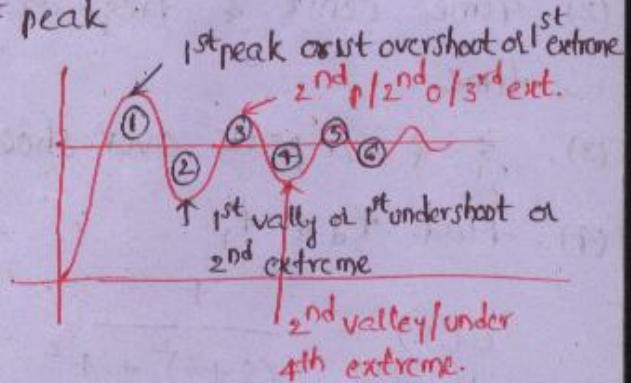 peak
1st peak or 1st overshoot or 1st extreme
2nd p/2nd o/3rd ext.
① ② ③ ④ ⑤ ⑥
1st vally or 1st undershoot or
2nd extreme
2nd valley/under
4th extreme.